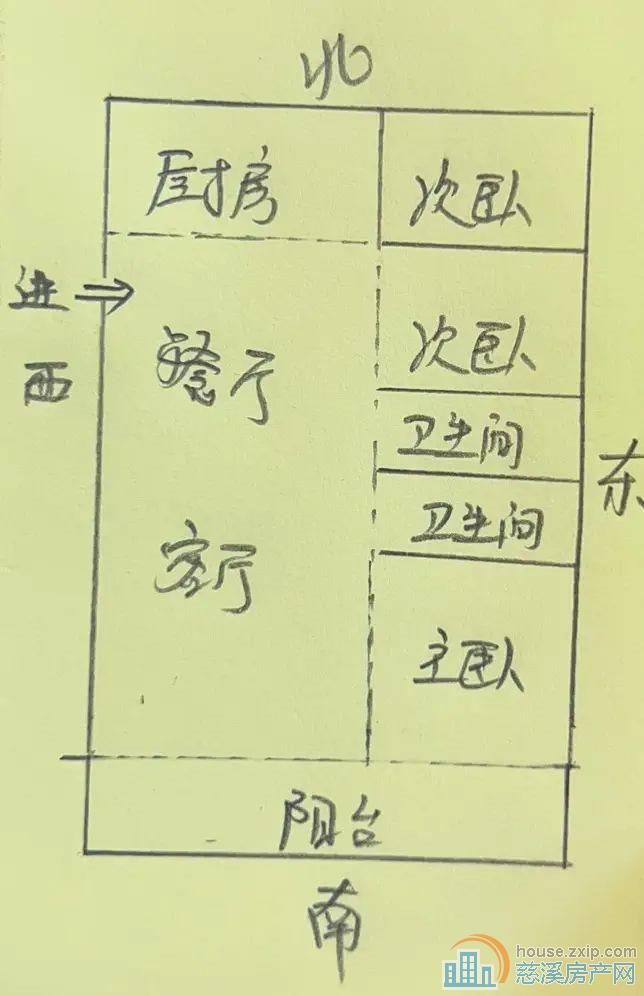 北
厨房
次卧
进
西
餐厅
次卧
卫生间
东
卫生间
客厅
主卧
阳台
南
house.zxip.com
慈溪房产网